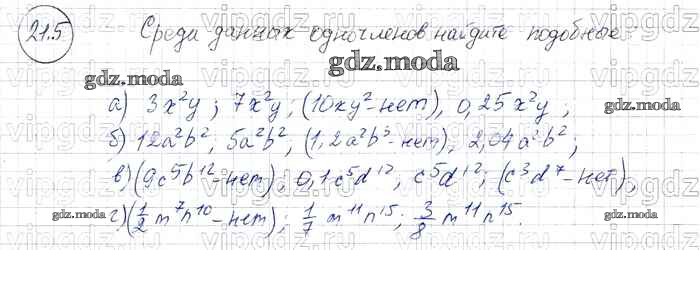 21.5 Среди данных одночленов найдите подобные:
gdz.moda
gdz.moda
а) 3x²y; 7x²y; (10xy²-нет), 0,25x²y;
gdz.moda
б) 12a²b², 5a²b², (1,2a²b³-нет), 2,04a²b²;
в) (9c⁵b¹²-нет), 0,1c⁵d¹², c⁵d¹²; (c³d⁷-нет),
г) (1/2 m⁷n¹⁰-нет); 1/7 m¹¹n¹⁵; 3/8 m¹¹n¹⁵.
gdz.moda
gdz.moda